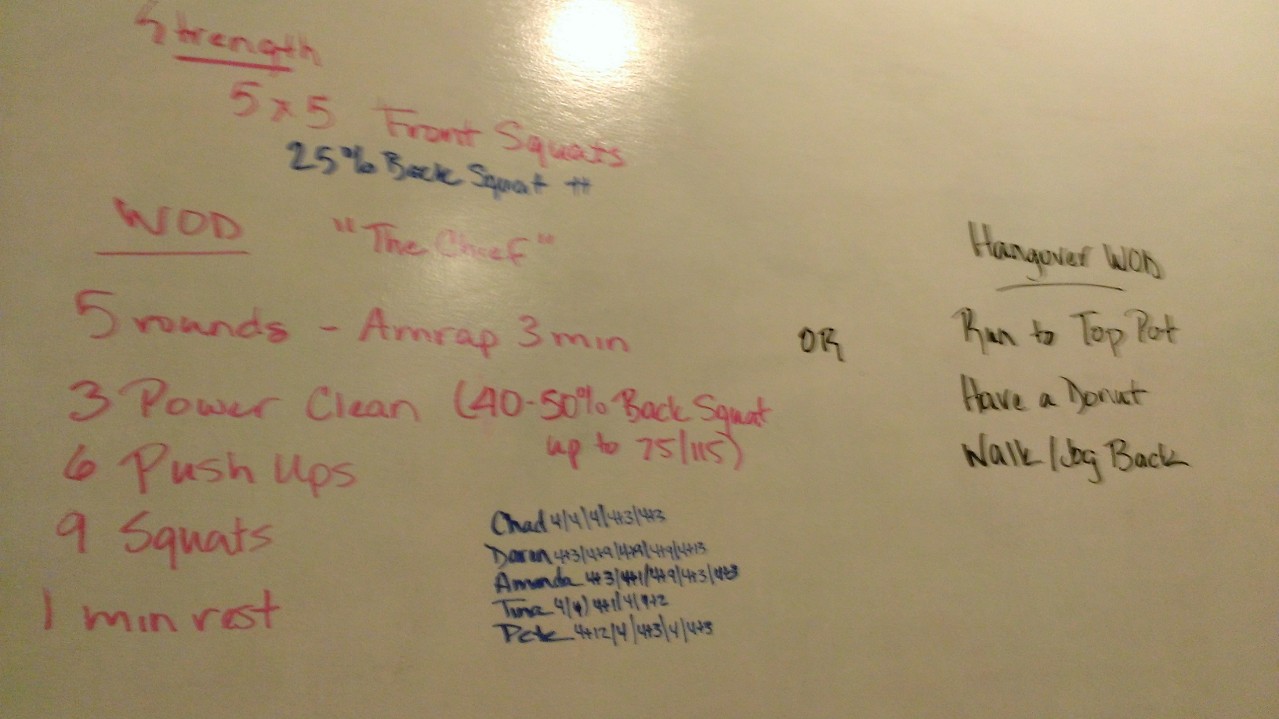 Strength
5x5 Front Squats
25% Back Squat ++
WOD "The Chief"
5 rounds - Amrap 3 min
3 Power Clean (40-50% Back Squat
up to 75/115)
6 Push Ups
9 Squats
1 min rest
Chad 4/4/4/4+3/4+3
4+3/4+9/4+9/4+9/4+13
Amanda 4+3/4+1/4+9/4+3/4+3
4/4/4+1/4/
4+12/4/4+3/4/4+3
OR
Hangover WOD
Run to Top Pot
Have a Donut
Walk/Jog Back